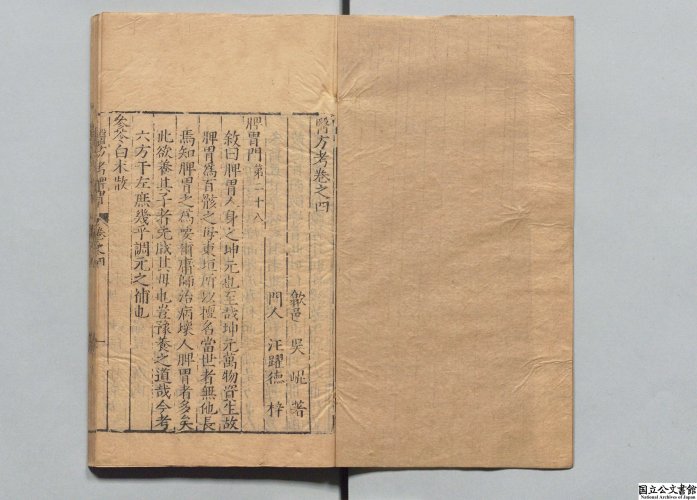 醫方考卷之四
歙邑 吳崐 著
門人 汪躍德 梓
脾胃門第二十八
敘曰脾胃人身之坤元也至哉坤元萬物資生故
脾胃爲百骸之母東垣所以擅名當世者無他長
焉知脾胃之爲要爾庸師治病壞人脾胃者多矣
此欲養其子者先戕其母也豈豫養之道哉今考
六方于左庶幾乎調元之補也
參苓白朮散
醫方考脾胃 卷之四 一
国立公文書館
National Archives of Japan